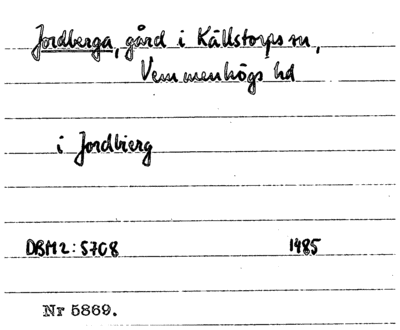 Jordberga, gård i Källstorps sn,
Vemmenhögs hd
i Jordbierg
DBM 2: 5708 1485
Nr 5869.